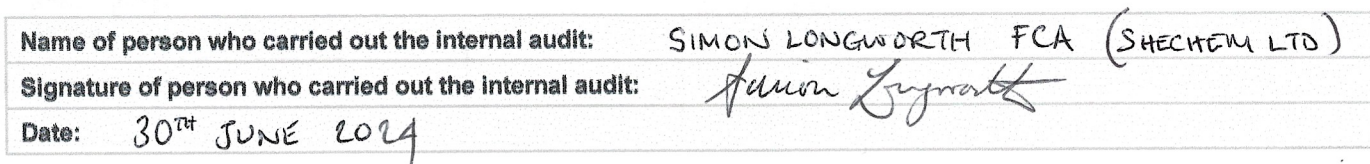 Name of person who carried out the internal audit: SIMON LONGWORTH FCA (SHECHEM LTD)
Signature of person who carried out the internal audit: Simon Longworth
Date: 30TH JUNE 2024